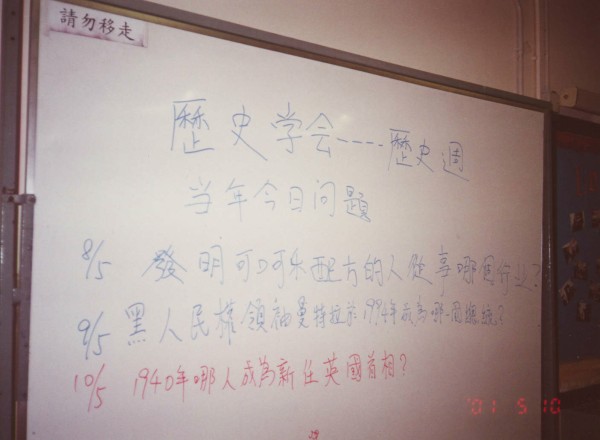 請勿移走
歷史学会----歷史週
当年今日问題
8/5 發明可口可乐配方的人從事哪個行业?
9/5 黑人民權領袖曼特拉於1994年成為哪一國總統?
10/5 1940年哪人成為新任英國首相?
'01 5 10